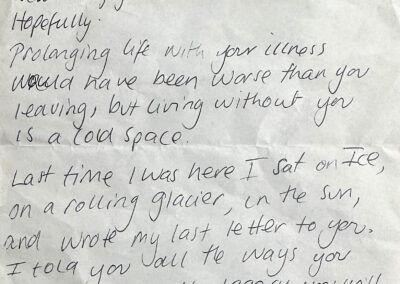 Hopefully.
Prolonging life with your illness
would have been worse than you
leaving, but living without you
is a cold space.
Last time I was here I sat on Ice,
on a rolling glacier, in the sun,
and wrote my last letter to you.
I told you all the ways you